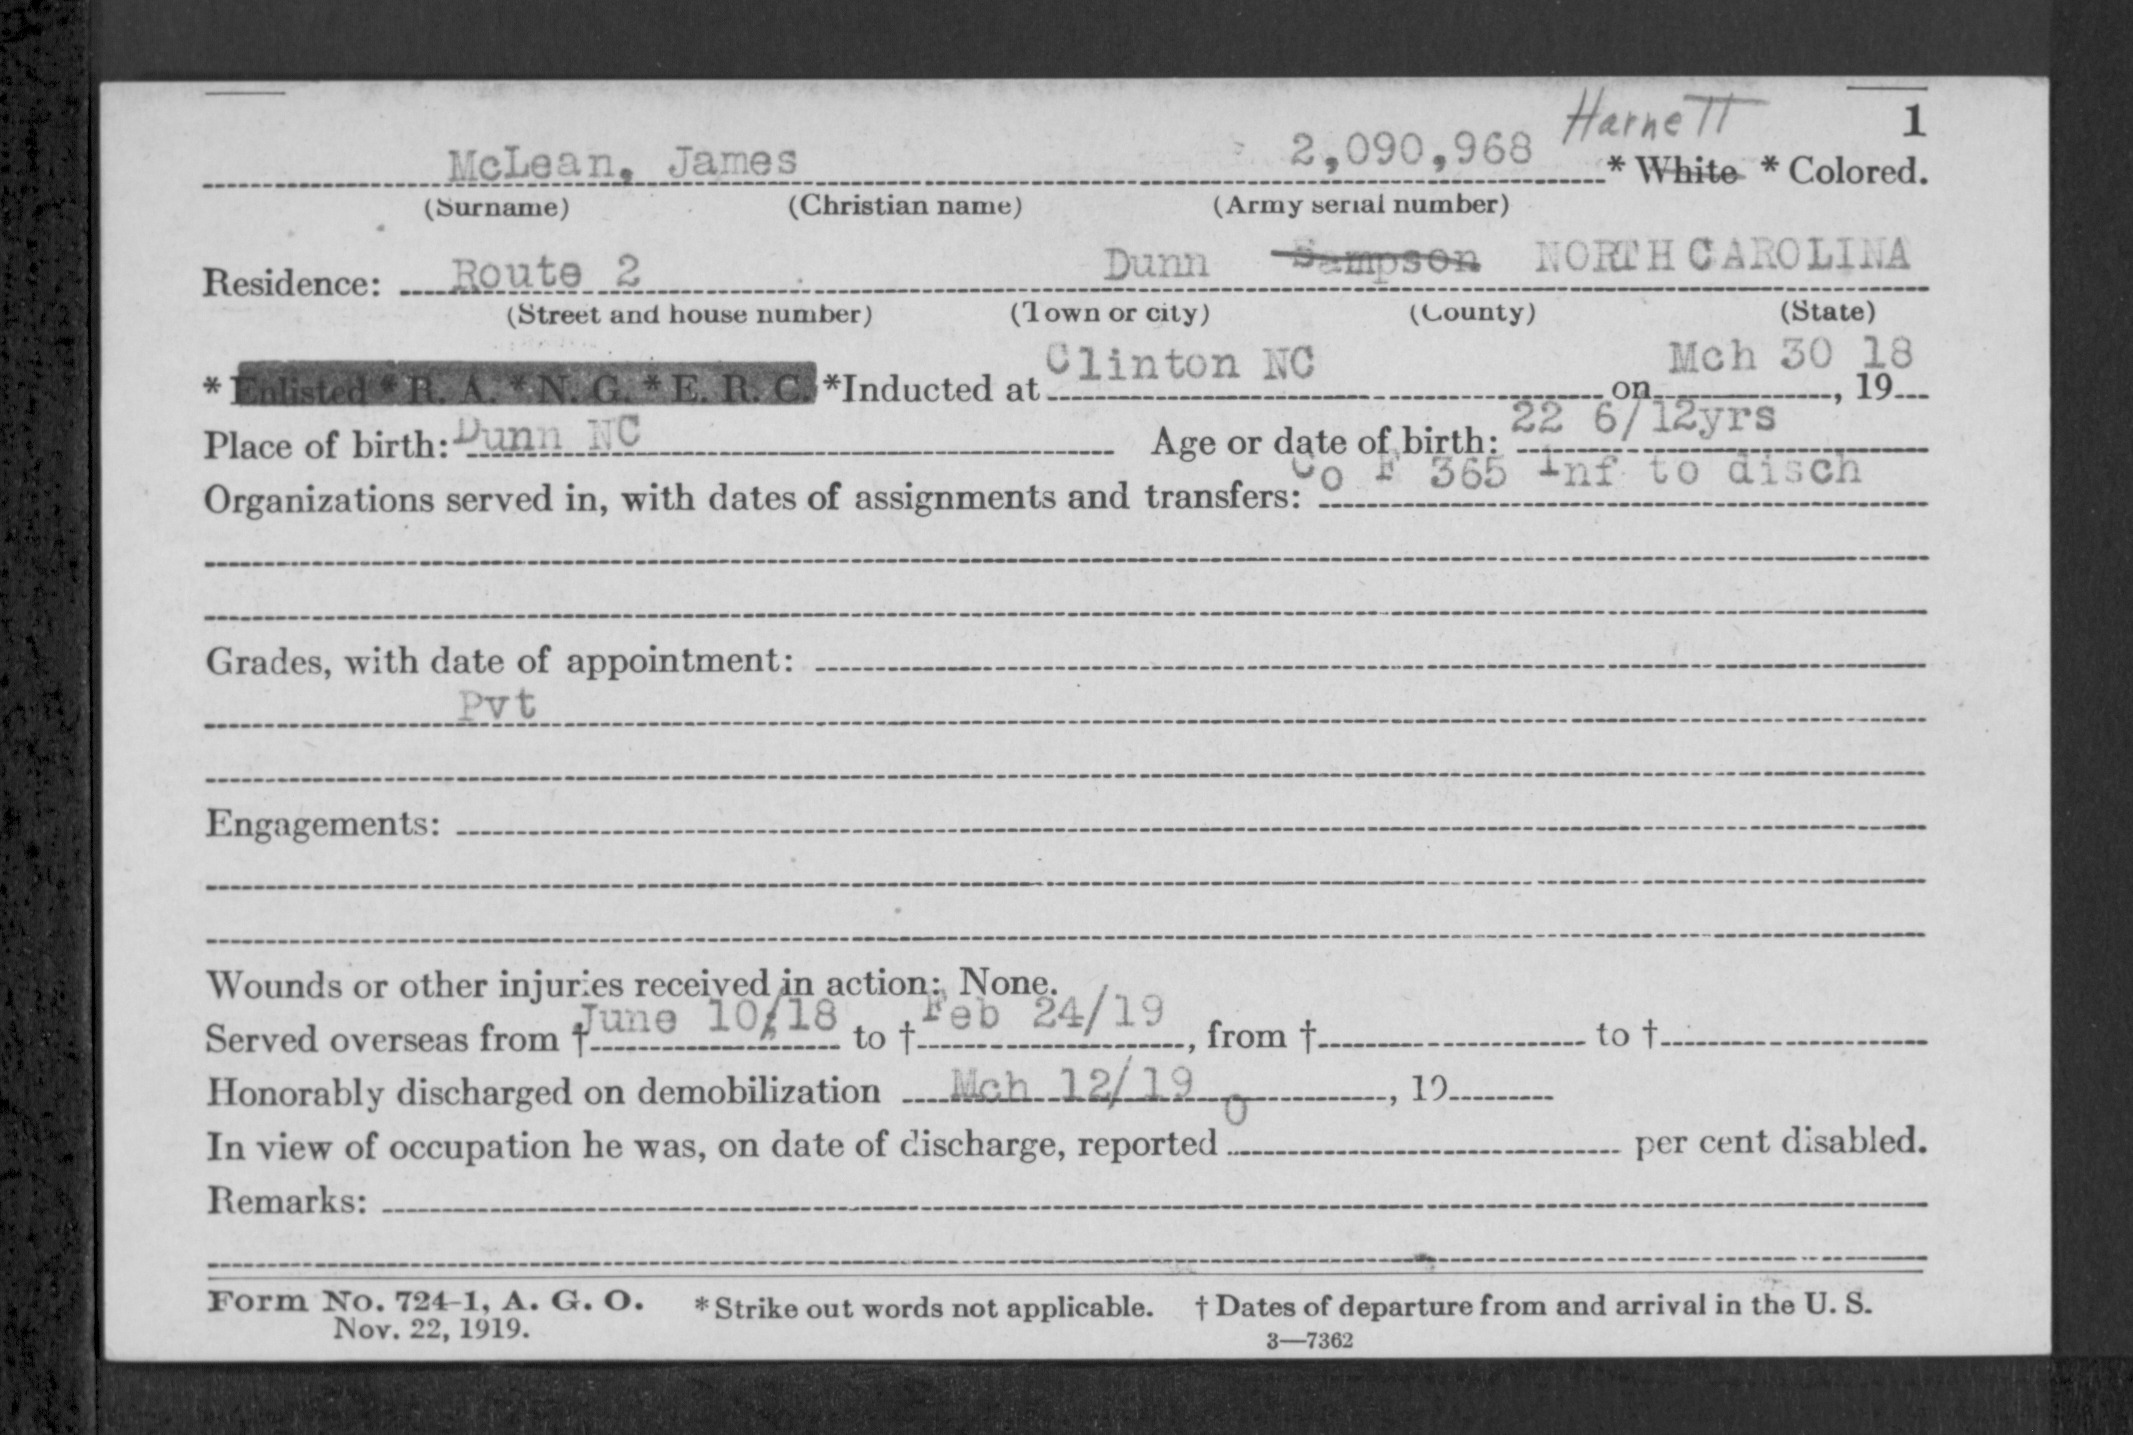 Harnett 1
McLean, James 2,090,968 * White * Colored.
(Surname) (Christian name) (Army serial number)
Residence: Route 2 Dunn Sampson NORTH CAROLINA
(Street and house number) (Town or city) (County) (State)
* Enlisted * R. A. * N. G. * E. R. C. *Inducted at Clinton NC on Mch 30 18, 19
Place of birth: Dunn NC Age or date of birth: 22 6/12yrs
Organizations served in, with dates of assignments and transfers: Co F 365 Inf to disch
Grades, with date of appointment:
Pvt
Engagements:
Wounds or other injuries received in action: None.
Served overseas from † June 10/18 to † Feb 24/19, from † to †
Honorably discharged on demobilization Mch 12/19, 19
In view of occupation he was, on date of discharge, reported 0 per cent disabled.
Remarks:
Form No. 724-1, A. G. O. * Strike out words not applicable. † Dates of departure from and arrival in the U. S.
Nov. 22, 1919. 3—7362